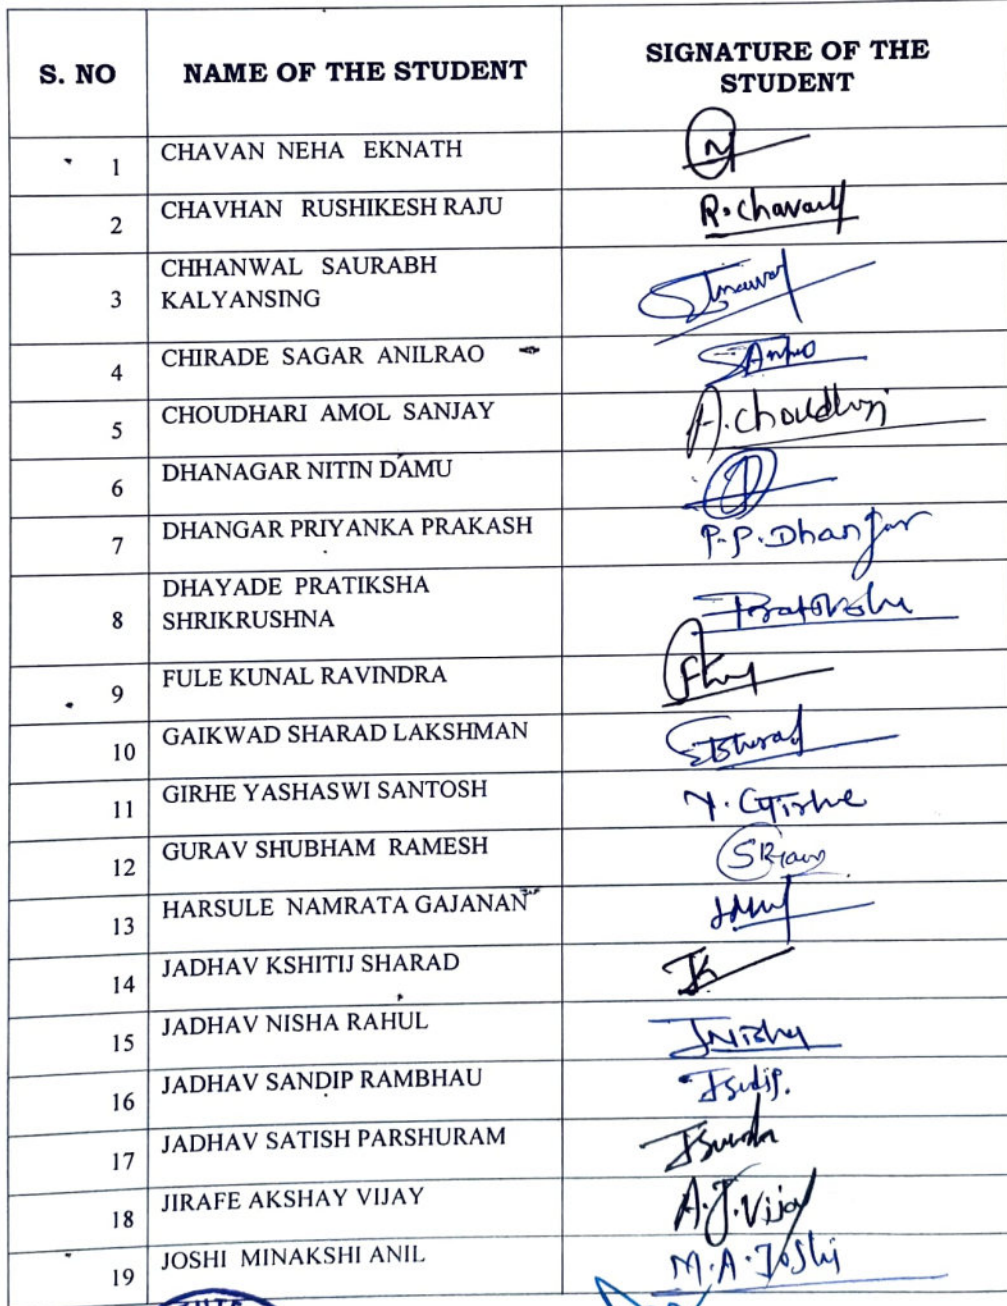 S. NO NAME OF THE STUDENT SIGNATURE OF THE
STUDENT
1 CHAVAN NEHA EKNATH N
2 CHAVHAN RUSHIKESH RAJU R. Chavan
3 CHHANWAL SAURABH
KALYANSING
4 CHIRADE SAGAR ANILRAO
5 CHOUDHARI AMOL SANJAY A. Choudhari
6 DHANAGAR NITIN DAMU
7 DHANGAR PRIYANKA PRAKASH P. P. Dhangar
8 DHAYADE PRATIKSHA
SHRIKRUSHNA Pratiksha
9 FULE KUNAL RAVINDRA
10 GAIKWAD SHARAD LAKSHMAN
11 GIRHE YASHASWI SANTOSH Y. Girhe
12 GURAV SHUBHAM RAMESH
13 HARSULE NAMRATA GAJANAN
14 JADHAV KSHITIJ SHARAD JK
15 JADHAV NISHA RAHUL JNisha
16 JADHAV SANDIP RAMBHAU
17 JADHAV SATISH PARSHURAM
18 JIRAFE AKSHAY VIJAY A. J. Vijay
19 JOSHI MINAKSHI ANIL M. A. Joshi